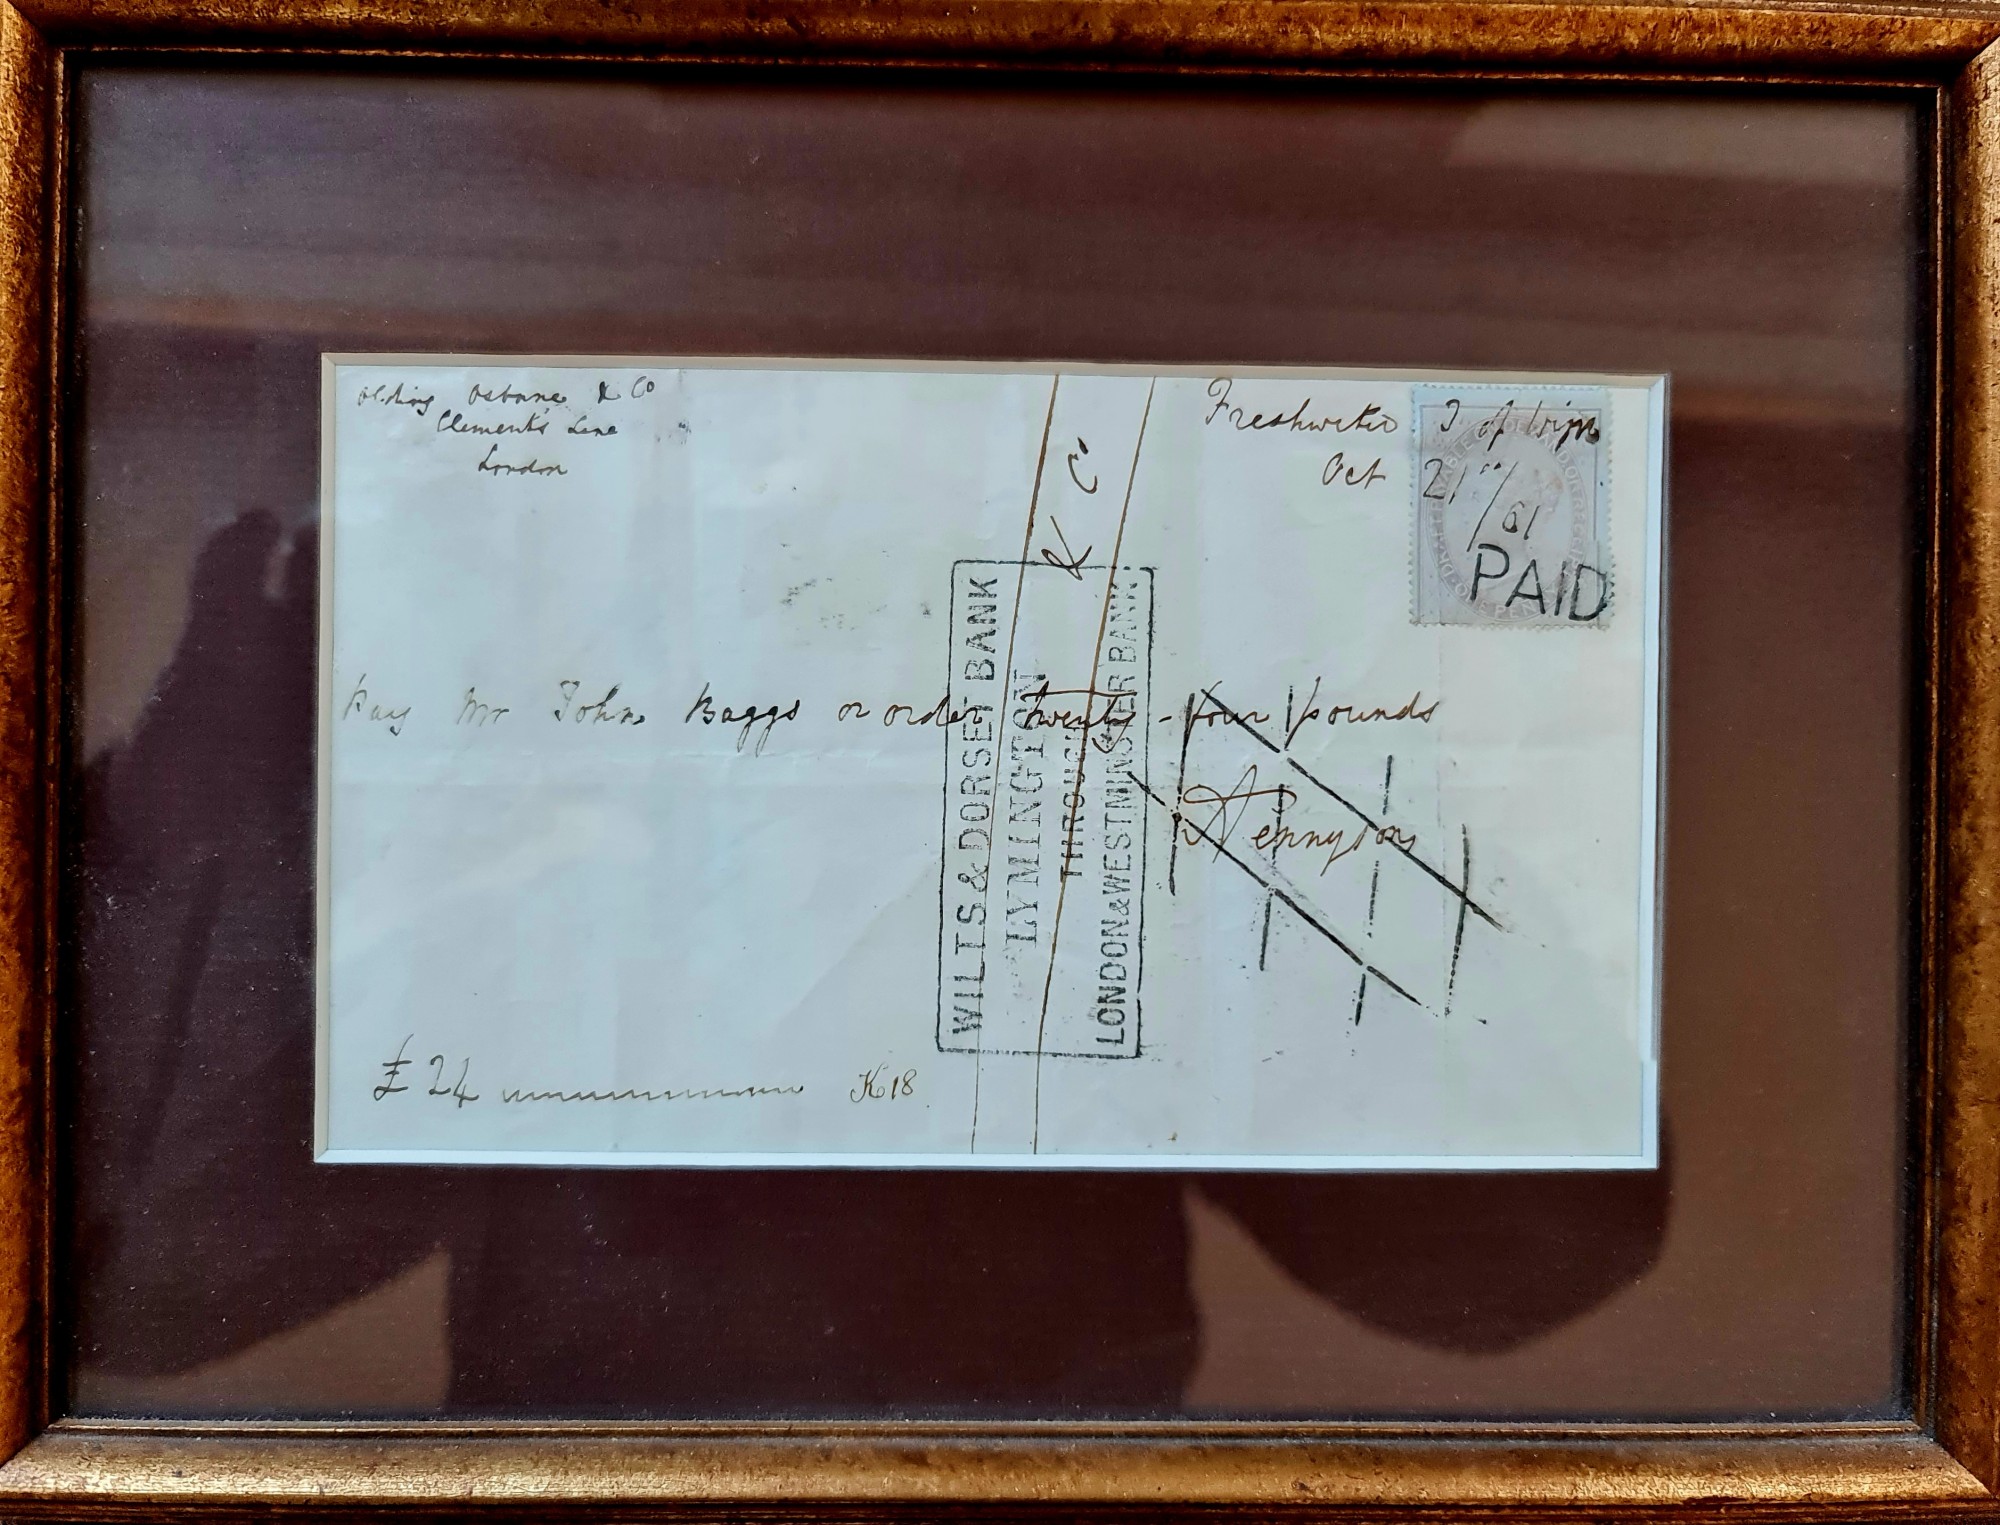 Olding Osborne & Co
Clement's Lane
London
Freshwater I of Wight
Oct 21st/61
PAID
& Co
WILTS & DORSET BANK
LYMINGTON
THROUGH
LONDON & WESTMINSTER BANK
Pay Mr John Baggs or order twenty-four pounds
ATennyson
£24
K18